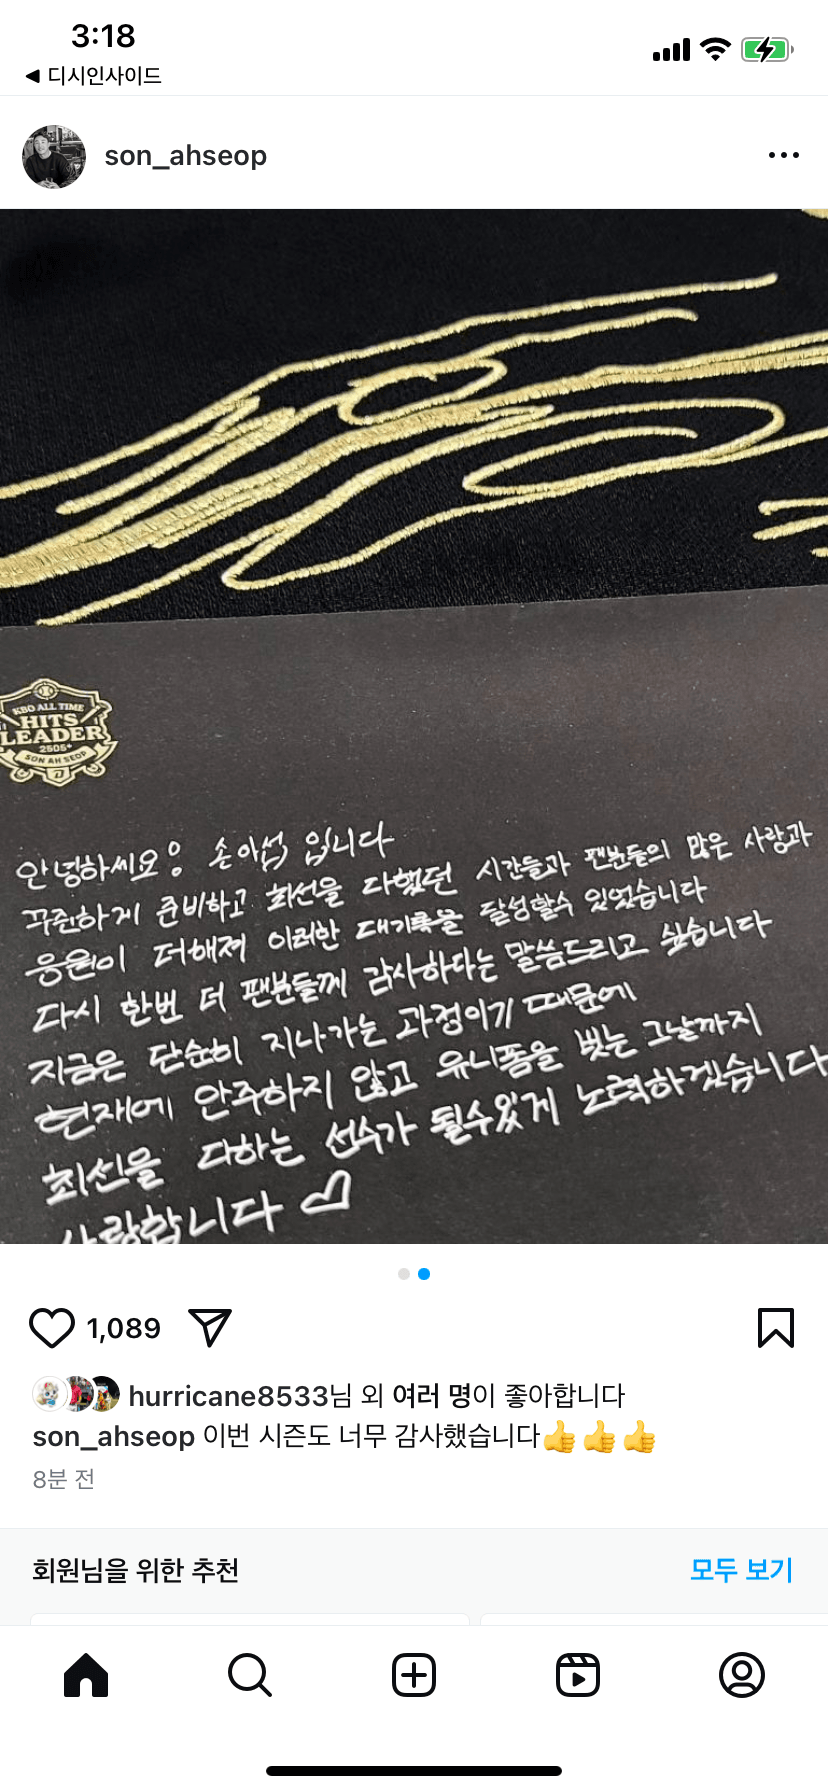 3:18
◀ 디시인사이드
son_ahseop
KBO ALL TIME
HITS
LEADER
2505+
SON AH SEOP
안녕하세요! 손아섭 입니다
꾸준하게 준비하고 최선을 다했던 시간들과 팬분들의 많은 사랑과
응원이 더해져 이러한 대기록을 달성할수 있었습니다
다시 한번 더 팬분들께 감사하다는 말씀드리고 싶습니다
지금은 단순히 지나가는 과정이기 때문에
현재에 안주하지 않고 유니폼을 벗는 그날까지
최선을 다하는 선수가 될수있게 노력하겠습니다
사랑합니다 ♡
1,089
hurricane8533님 외 여러 명이 좋아합니다
son_ahseop 이번 시즌도 너무 감사했습니다👍👍👍
8분 전
회원님을 위한 추천 모두 보기